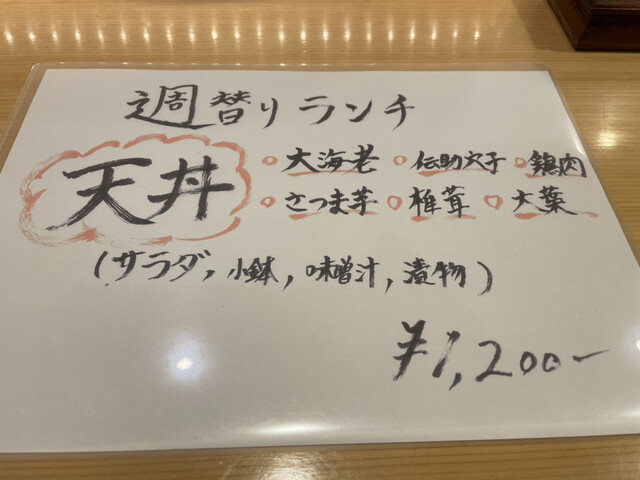 週替りランチ
天丼
◦大海老 ◦伝助穴子 ◦鶏肉
◦さつま芋 ◦椎茸 ◦大葉
(サラダ, 小鉢, 味噌汁, 漬物)
¥1,200-